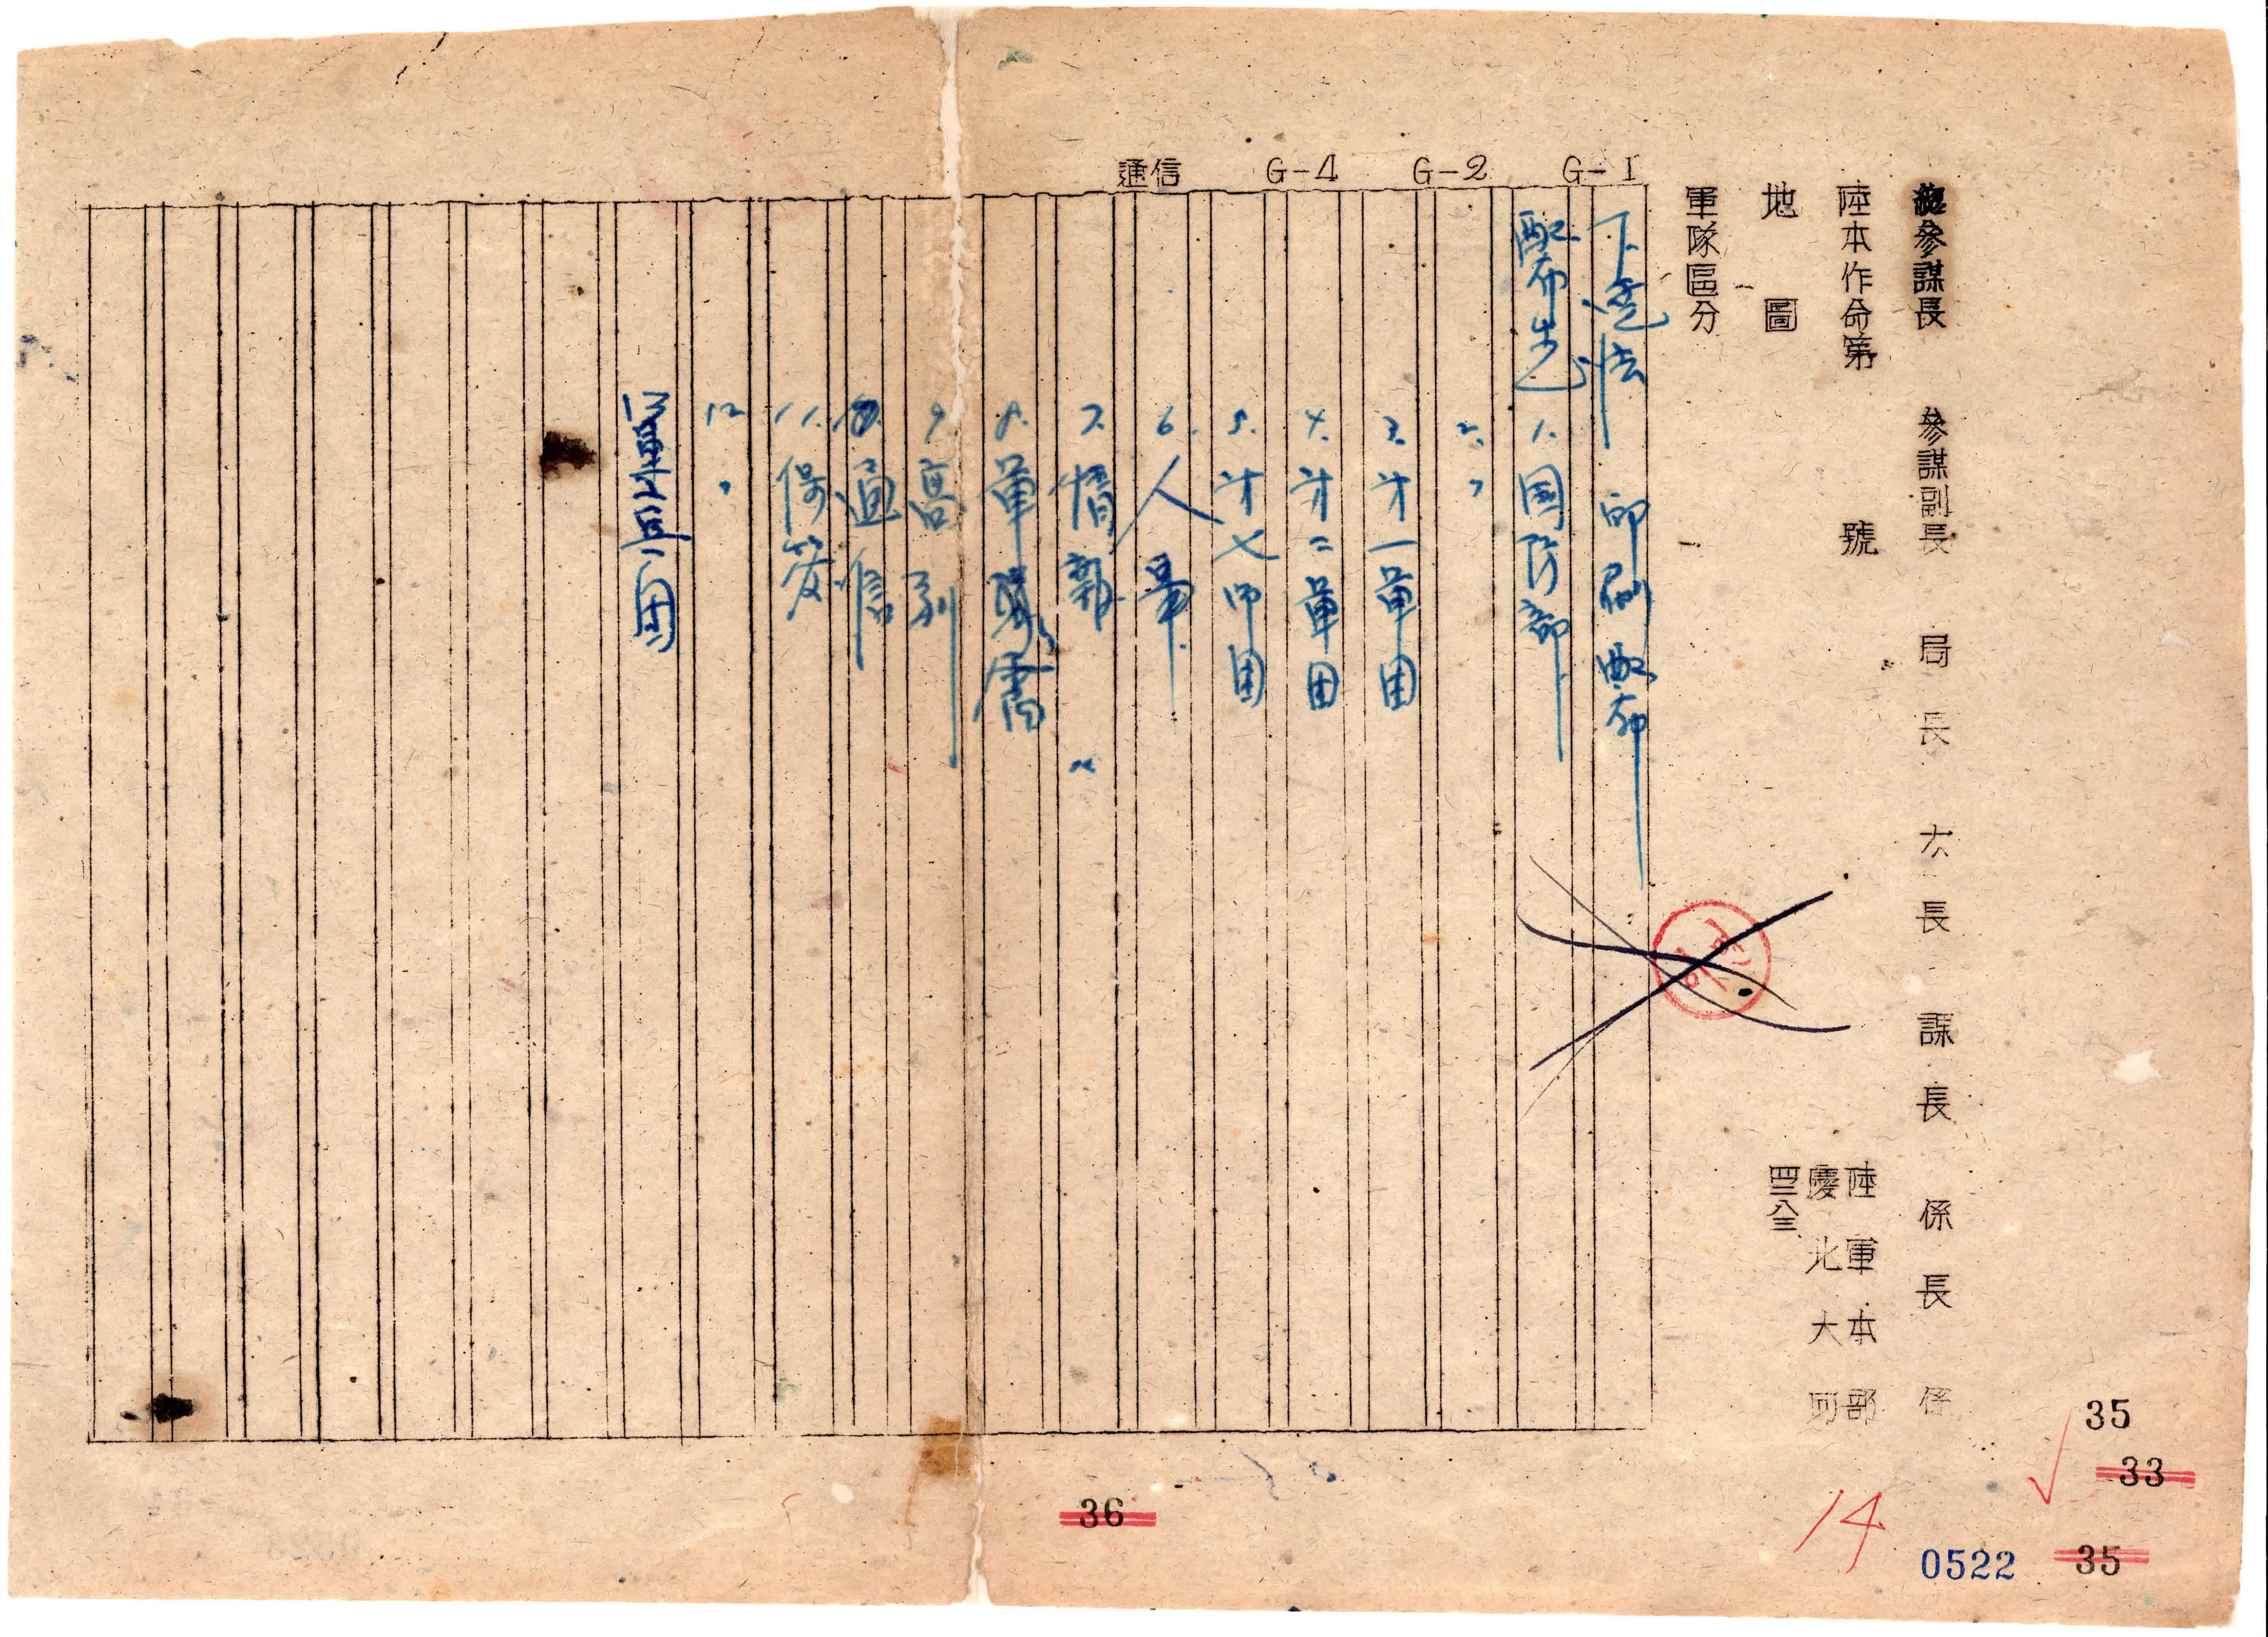 總參謀長 參謀副長 局長 次長 課長 係長 係
陸本作命第 號
陸軍本部
慶北大邱
四二八三
地圖
軍隊區分
G-1
G-2
G-4
通信
下達法 印刷配布
配布先 1. 国防部
2. 〃
3. 才一軍団
4. 才二軍団
5. 才七師団
6. 人事
7. 情報
8. 軍需
9. 高副
10. 通信
11. 保管
12. 〃
工兵団
35
33
14
36
0522
35